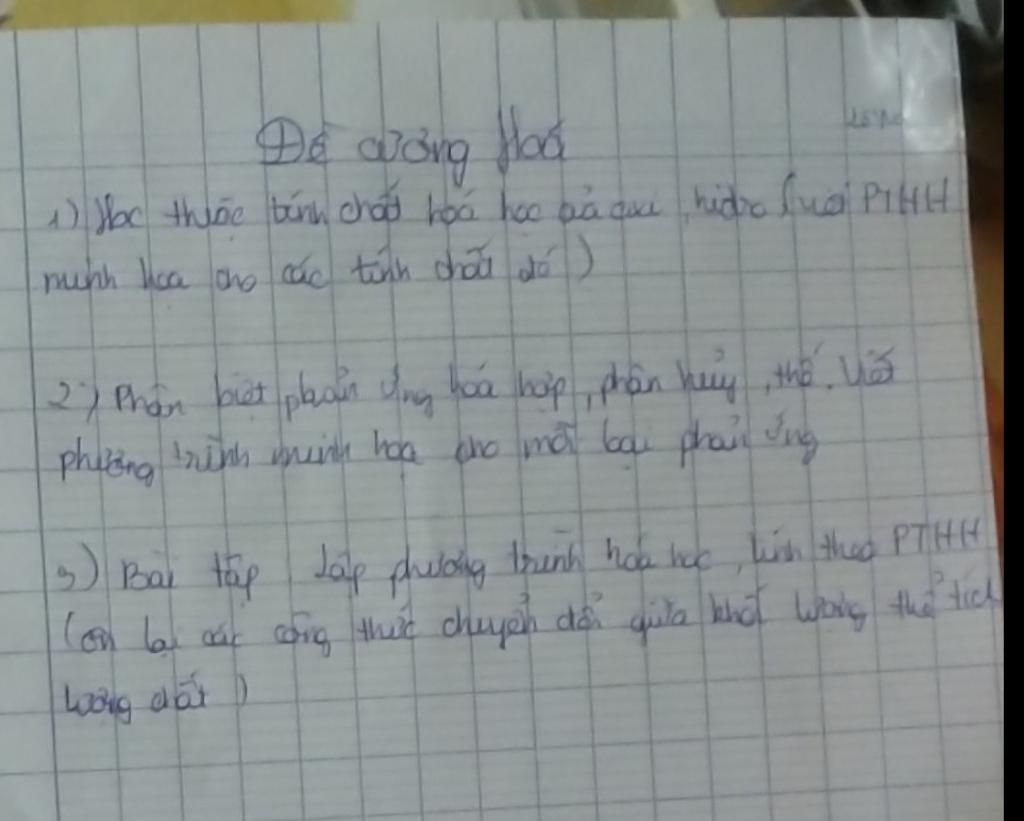 Đề cương Hoá
1) Học thuộc tính chất hoá học của oxi, hidro (viết PTHH
minh hoạ cho các tính chất đó)
2) Phân biệt phản ứng hoá hợp, phân hủy, thế. Viết
phương trình minh hoạ cho mỗi loại phản ứng
3) Bài tập lập phương trình hoá học, tính theo PTHH
(ôn lại các công thức chuyển đổi giữa khối lượng thể tích
lượng chất)